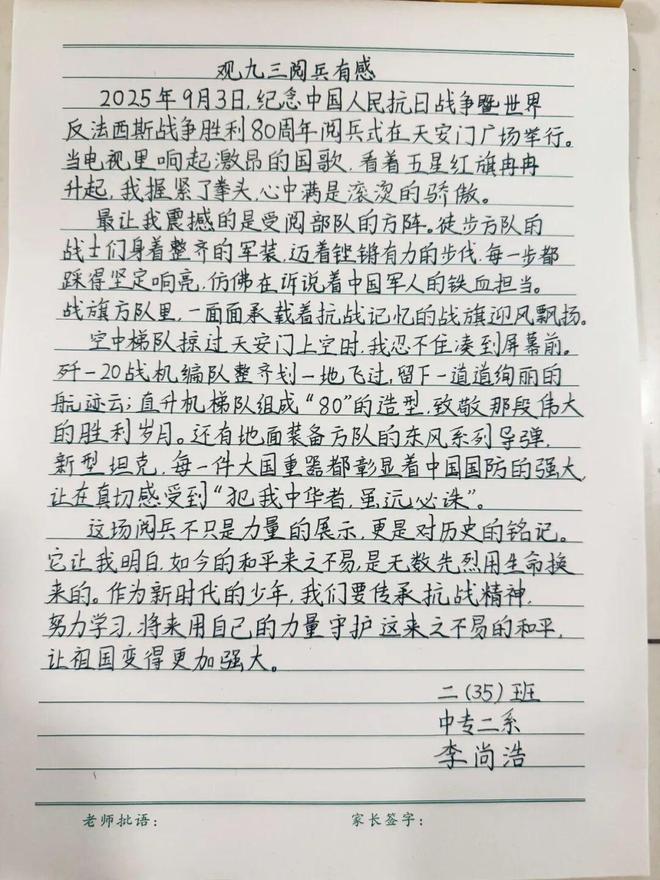 观九三阅兵有感
2025年9月3日,纪念中国人民抗日战争暨世界
反法西斯战争胜利80周年阅兵式在天安门广场举行。
当电视里响起激昂的国歌,看着五星红旗冉冉
升起,我握紧了拳头,心中满是滚烫的骄傲。
最让我震撼的是受阅部队的方阵。徒步方队的
战士们身着整齐的军装,迈着铿锵有力的步伐,每一步都
踩得坚定响亮,仿佛在诉说着中国军人的铁血担当。
战旗方队里,一面面承载着抗战记忆的战旗迎风飘扬。
空中梯队掠过天安门上空时,我忍不住凑到屏幕前。
歼-20战机编队整齐划一地飞过,留下一道道绚丽的
航迹云;直升机梯队组成“80”的造型,致敬那段伟大
的胜利岁月。还有地面装备方队的东风系列导弹,
新型坦克,每一件大国重器都彰显着中国国防的强大,
让在真切感受到“犯我中华者,虽远必诛”。
这场阅兵不只是力量的展示,更是对历史的铭记。
它让我明白,如今的和平来之不易,是无数先烈用生命换
来的。作为新时代的少年,我们要传承抗战精神,
努力学习,将来用自己的力量守护这来之不易的和平,
让祖国变得更加强大。
二(35)班
中专二系
李尚浩
老师批语: 家长签字: